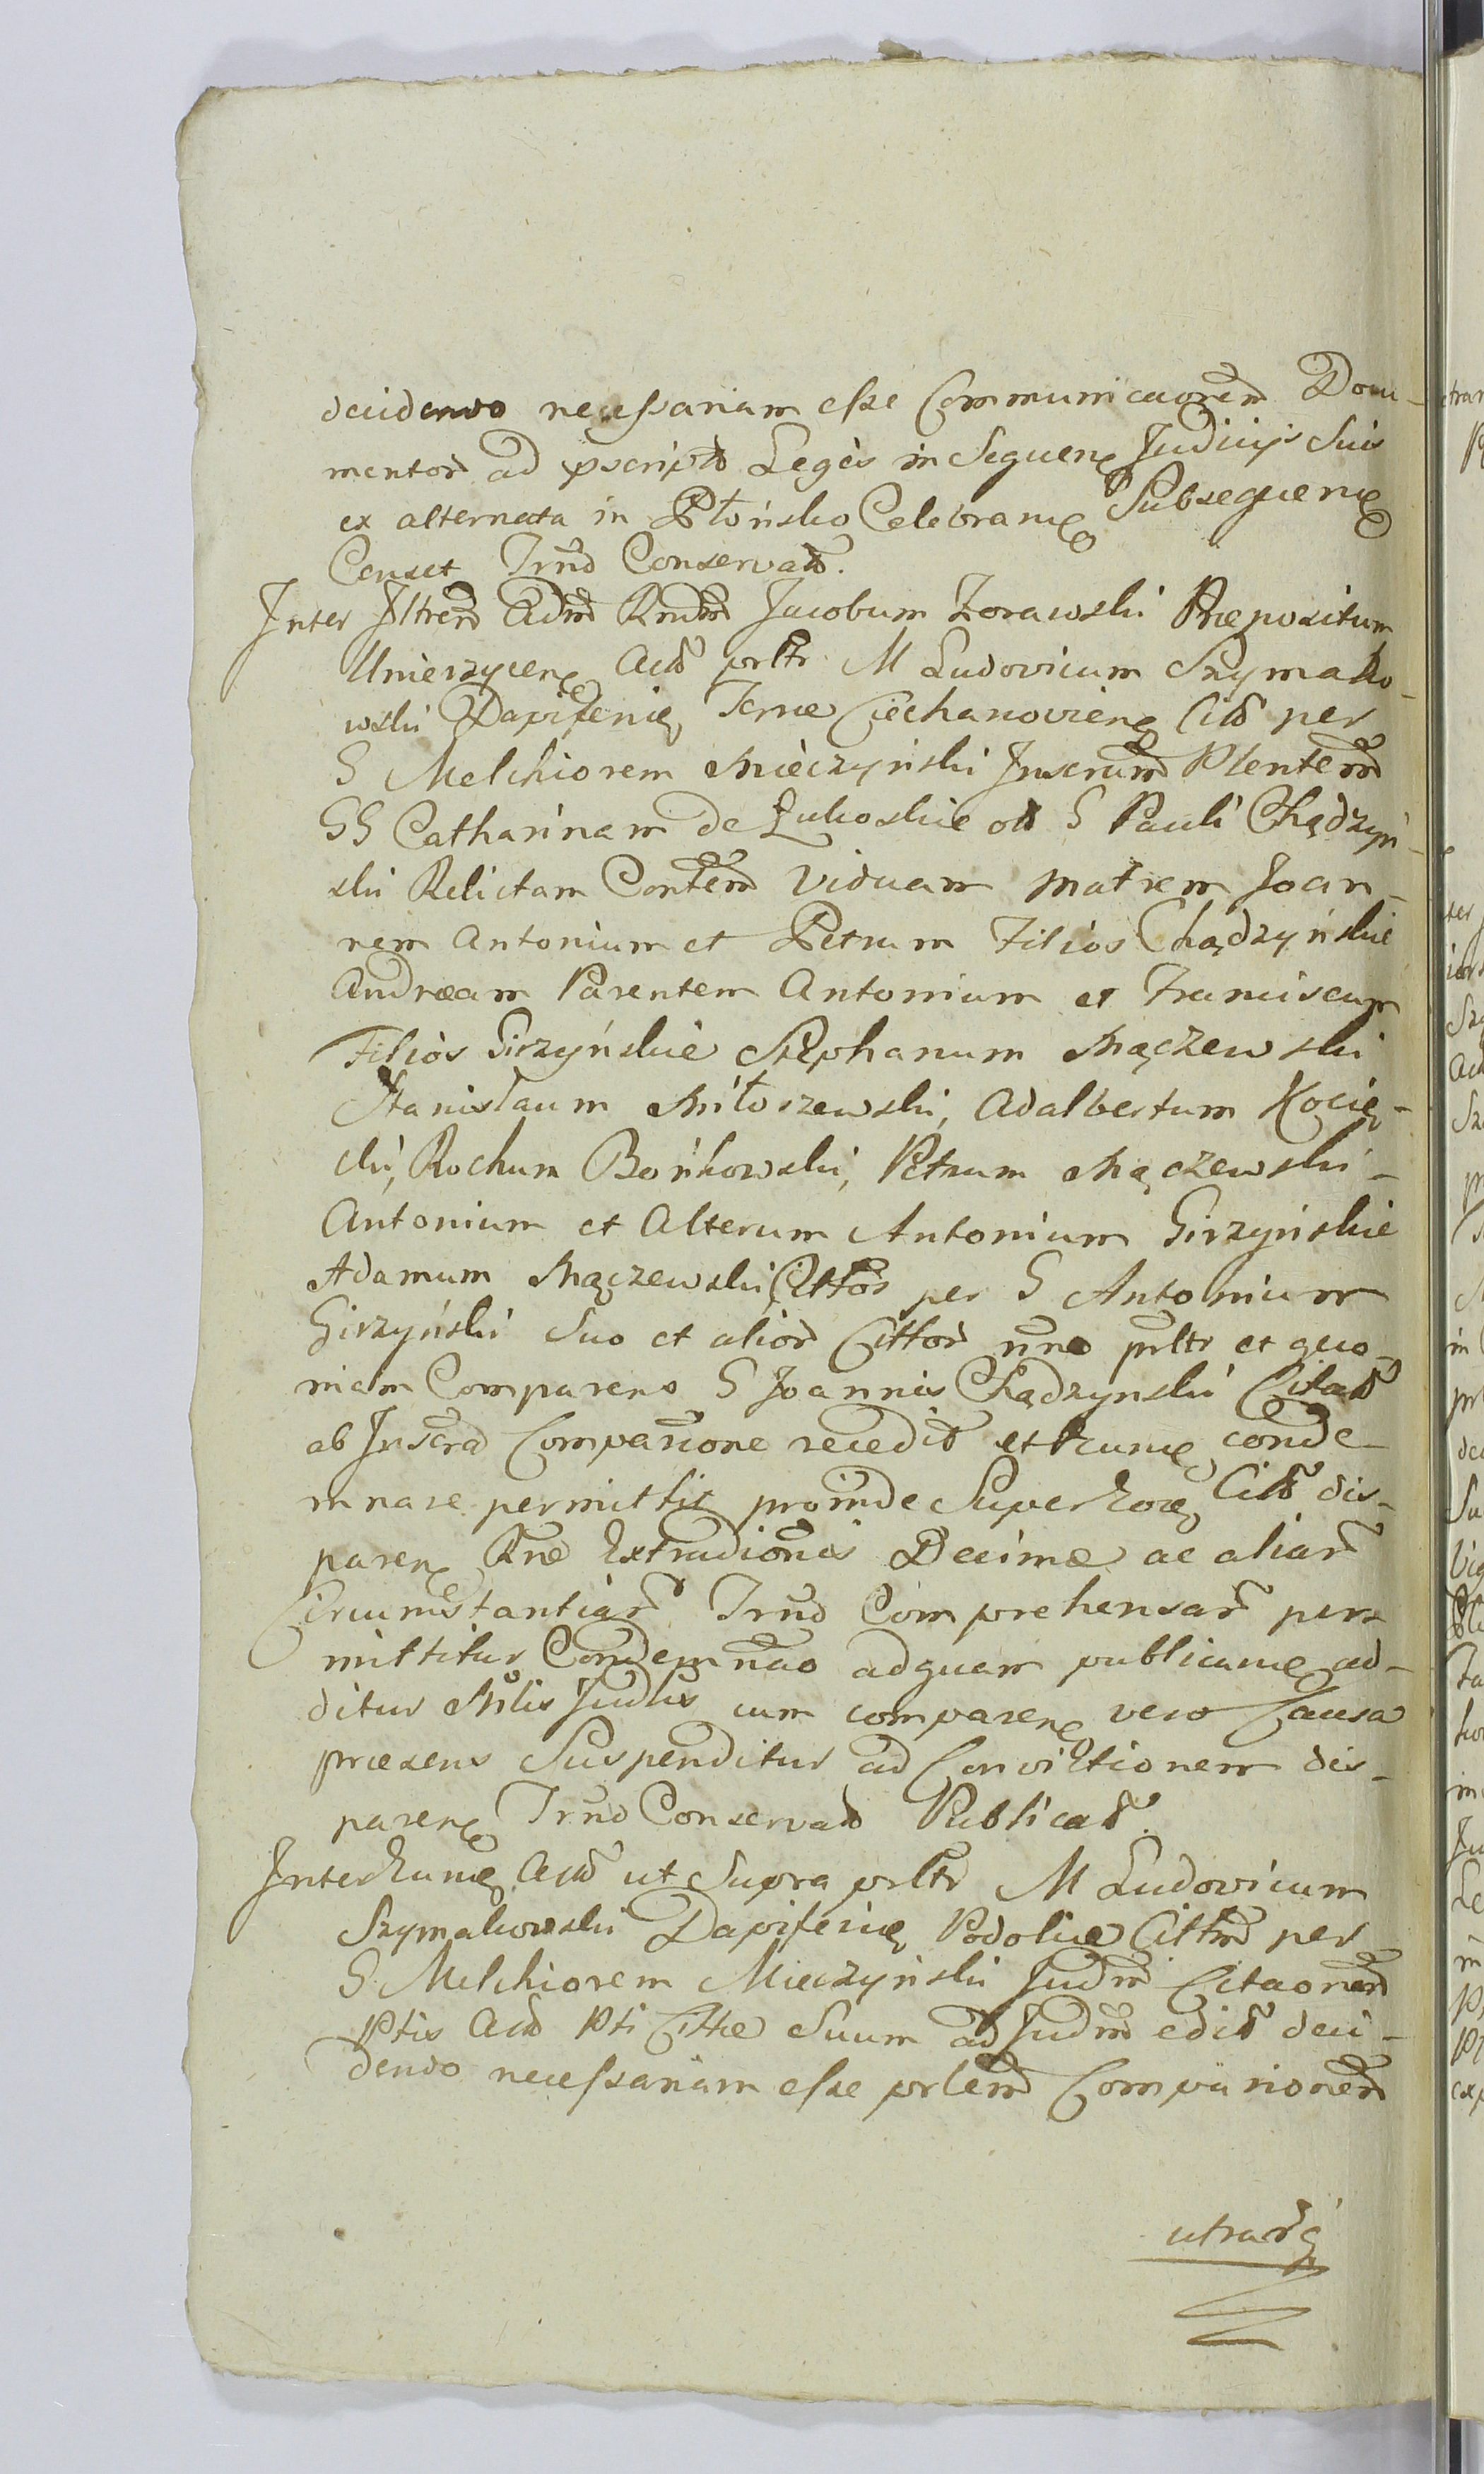 decidendo necessariam esse Communicaonem Docu-
mentor ad pscript Legis in Sequen Judicijs Suis
ex alternata in Płońsko Celebran Subsequen
Censet Trnd Conservat.
Inter Jltrem Adm Rndm Jacobum Zorawski Præpositum
Unierzycen Act prltr M Ludovicum Szymako-
wski Dapiferum Terræ Ciechanovien Citt per
G Melchiorem Mieczyński Juscrum Plentem
GG Catharinam de Łukoskie olt G Pauli Chądzyń-
ski Relictam Contem Viduam Matrem Joan-
nem Antonium et Petrum Filios Chądzyńskie
Andræam Parentem Antonium et Franciscum
Filios Girzyńskie Stephanum Mączewski
Stanisłaum Miłoszewski, Adalbertum Kocię-
cki, Rochum Bońkowski, Petrum Mączewski-
Antonium et Alterum Antonium Girzyńskie
Adamum Mączewski Cittos per G Antonium
Girzyński Suo et alior Cittor nne prltr et quo-
niam Comparens G Joannis Chądzynski Citat
ab Juscra Comparione recedit et hunc conde-
mnare permittit proinde Super hoc Citt dis-
paren Rne Extradionis Decimæ ac aliar
Circumstantiar Trnd Comprehensar per-
mittitur Condemnao ad quam publicand ad-
ditur Mlis Judlis cum comparen vero Causa
præsens Suspenditur ad Convictionem dis-
paren Trnd Conservat Publicat.
Inter hunc Act ut Supra prltr M Ludovicum
Szymakowski Dapiferum Podoliæ Cittm per
G Melchiorem Mieczyński Judm Citaonem
Ptis Act Pti Cittæ Suum ad Judm edit deci-
dendo necessariam esse prlem Comparionem
utrarq